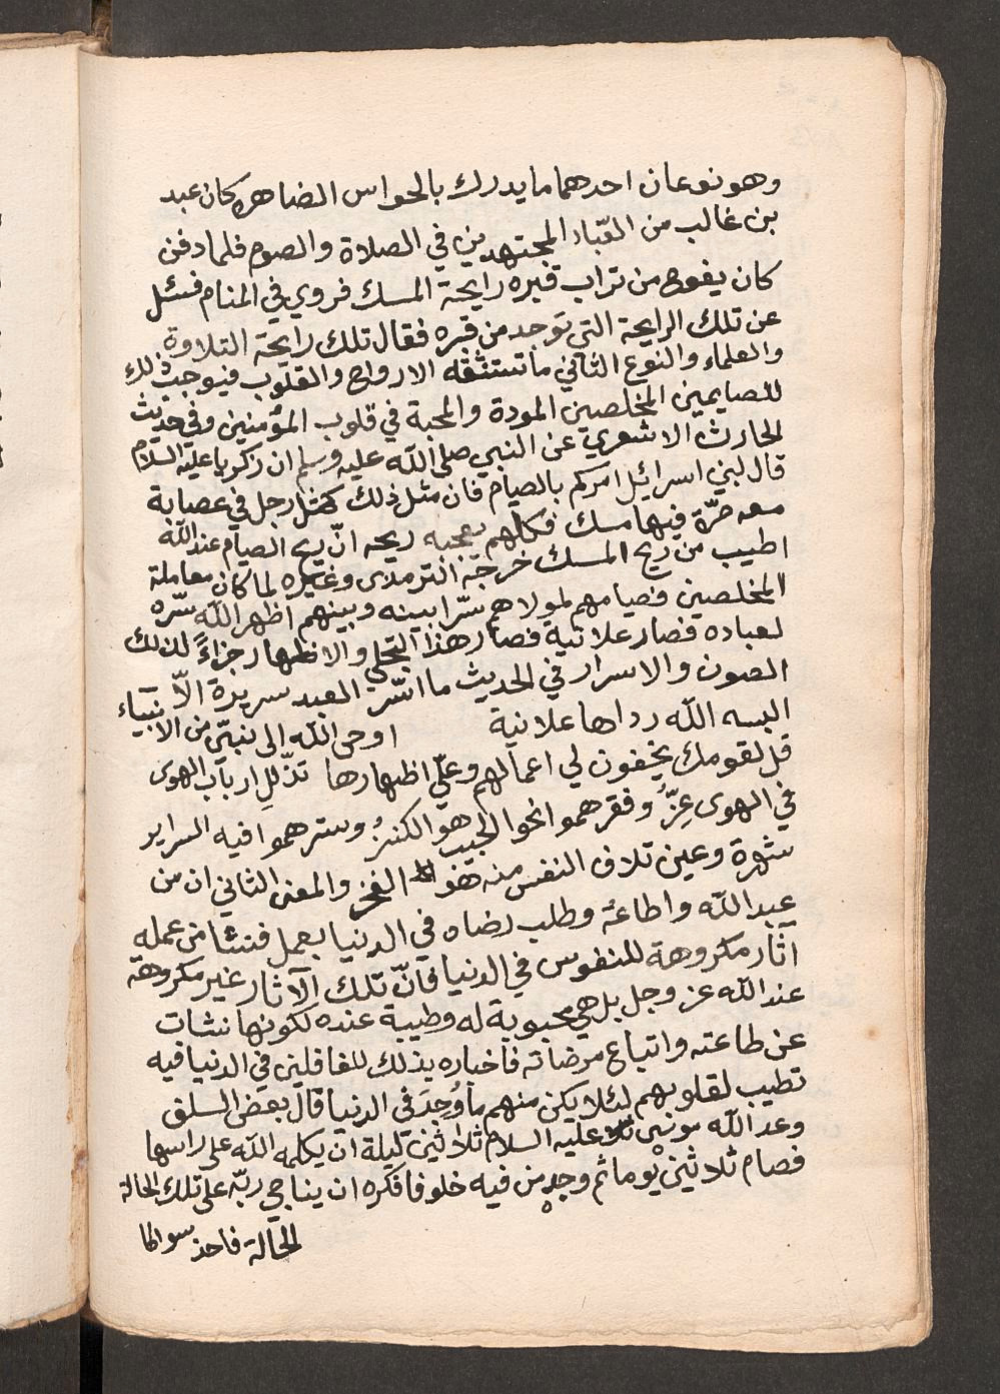 وهو نوعان احدهما ما يدرك بالحواس الضاهره كان عبد
بن غالب من العّباد المجتهدين في الصلاة والصوم فلما دفن
كان يفوح من تراب قبره رايحة المسك فروي في المنام فسئل
عن تلك الرايحة التي توجد من قبره فقال تلك رايحة التلاوة
والعلماء والنوع الثاني ما تستنشقه الارواح والقلوب فيوجب ذلك
للصايمين المخلصين المودة والمحبة في قلوب المؤمنين وفي حديث
الحارث الاشعري عن النبي صلى الله عليه وسلم ان زكريا عليه السلام
قال لبني اسرائيل امركم بالصيام فان مثل ذلك كمثل رجل في عصابة
معه صرّة فيها مسك فكلهم يعجبه ريحه انّ ريح الصيام عند الله
اطيب من ريح المسك خرجه الترمذى وغيره لما كان معاملة
المخلصين فصيامهم لمولاهم سّرا بينه وبينهم اظهر الله سّره
لعباده فصار علانية فصار هذا التجلى والاظهار جزاءً لذلك
الصون والاسرار في الحديث ما اسّر العبد سريرة الاّ
البسه الله رداها علانية اوحى الله الى نبيّ من الانبياء
قل لقومك يخفون لي اعمالهم وعلّي اظهارها تذّللِ ارباب الهوى
في الهوى عِزٌّ وفقرهموا نحوا الحبيب هو الكنزُ وسترهموا فيه السراير
شهرة وعين تلاف النفس منه هو الفخر والمعنى الثاني ان من
عبد الله واطاعهُ وطلب رضاه في الدنيا بعمل فنشا من عمله
آثار مكروهة للنفوس في الدنيا فانّ تلك الآثار غير مكروهة
عند الله عز وجل بل هي محبوبة له وطيبة عنده لكونها نشات
عن طاعته واتباع مرضاته فاخباره بذلك للغافلين في الدنيا فيه
تطيب لقلوبهم لئلا يكن منهم ما وُجِدَ في الدنيا قال بعض السلف
وعد الله موسى عليه السلام ثلاثين ليلة ان يكلمه الله على راسها
فصام ثلاثين يوما ثم وجد من فيه خلوفا فكره ان يناجي ربّه على تلك الحالة
الحالة فاحذ سواطا